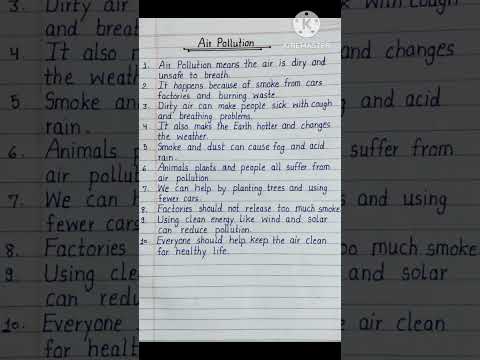 KINEMASTER
Air Pollution
1. Air Pollution means the air is diry and
unsafe to breath.
2. It happens because of smoke from cars
factories and burning waste.
3. Dirty air can make people sick with cough
and breathing problems.
4. It also maks the Earth hotter and changes
the weather.
5. Smoke and dust can cause fog and acid
rain.
6. Animals plants and people all suffer from
air pollution
7. We can help by planting trees and using
fewer cars.
8. Factories should not release too much smoke
9. Using clean energy like wind and solar
can reduce pollution.
10. Everyone should help keep the air clean
for healthy life.
3. Dirty air
and breat
4. It also m
the weath
5. Smoke an
rain.
6. Animals
air pollut
7. We can h
fewer cars
8. Factories
9. Using cle
can redu
10. Everyone
for healt
k with cough
and changes
and acid
suffer from
and using
oo much smoke
and solar
air clean